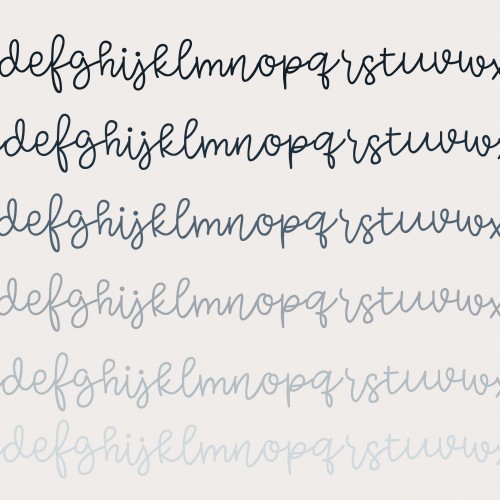 defghijklmnopqrstuvwx
defghijklmnopqrstuvwx
defghijklmnopqrstuvwx
defghijklmnopqrstuvwx
defghijklmnopqrstuvwx
defghijklmnopqrstuvwx